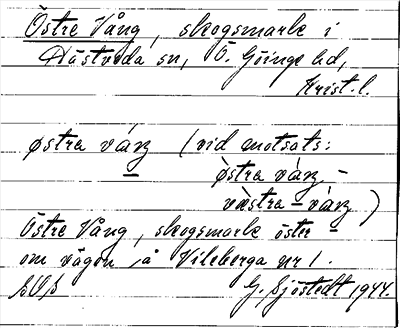 Östre Vång, skogsmark i
Hästveda sn, Ö. Göinge hd,
Krist. l.
østra váŋ (vid motsats:
østra váŋ –
västra – váŋ)
Östre Vång, skogsmark öster
om vägen å Vileberga nr 1.
G. Sjöstedt 1944.